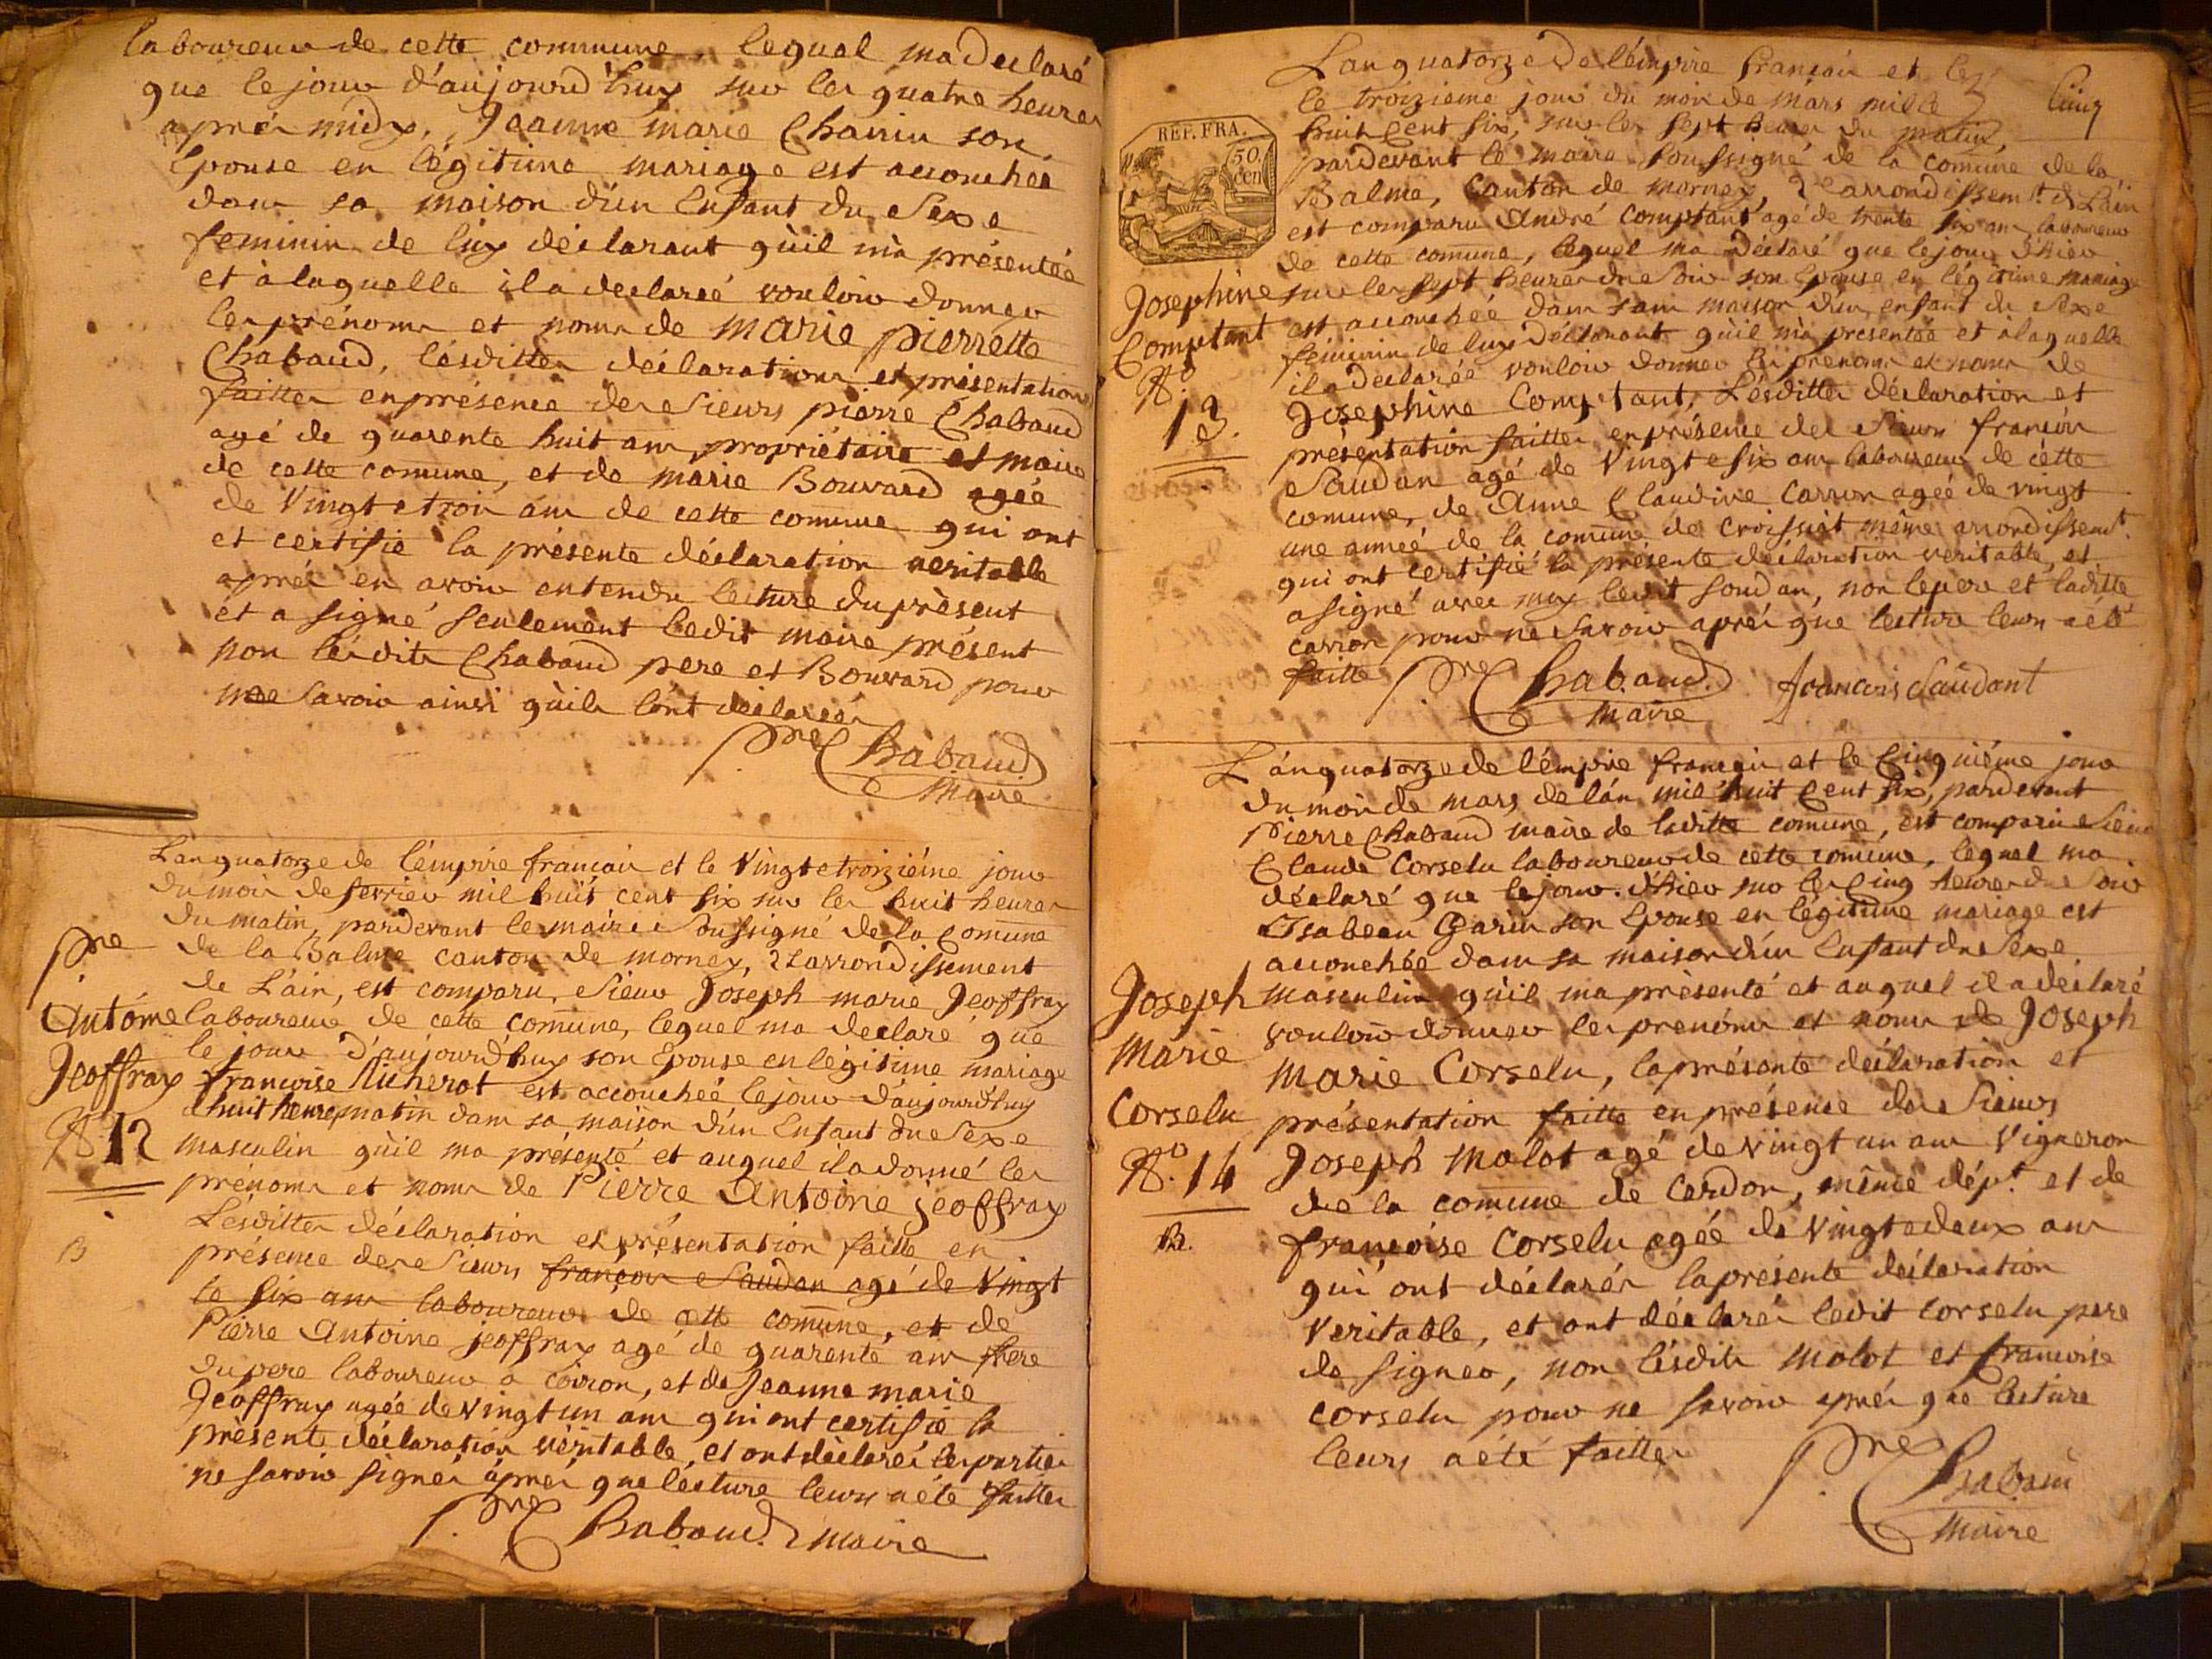 laboureur de cette commune, lequel ma declaré
que le jour d'aujourd'huy sur les quatre heures
aprés midy, Jeanne marie Charrin son
Epouse en légitime mariage est accouchée
dans sa maison d'un Enfant du Sexe
feminin de luy déclarant qu'il m'a présentée
et à laquelle il a declaré vouloir donner
les prénoms et noms de marie pierrette
Chabaud, lésdittes déclarations et présentation
faittes en présence des Sieurs pierre Chabaud
agé de quarente huit ans propriétaire et maire
de cette comune, et de marie Bouvard agée
de Vingt etrois ans de cette comune qui ont
et certifié la présente déclaration veritable
aprés en avoir entendu lecture du présent
et a signé seulement ledit maire présent
non lésdits Chabaud pere et Bouvard pour
ne savoir ainsi qu'ils l'ont déclarés
Pre Chabaud
Maire
Lan quatorze de l'émpire francais et le Vingt etroiziéme jour
du mois de fevrier mil huit cent six sur les huit heures
du matin, pardevant le maire Soussigné de la Comune
de la Balme canton de mornay, 2 Larrondissement
de L'ain, est comparu, Sieur Joseph marie Jeoffray
laboureur de cette comune, lequel ma declaré que
le jour d'aujourd'huy son Epouse en légitime mariage
francoise Micherot est accouchée le jour d'aujourd'huy
à huit heures matin dans sa maison d'un Enfant du Sexe
masculin qu'il ma présenté et auquel il a donné les
prénoms et noms de Pierre Antoine jeoffray
Lésdittes déclaration et présentation faitte en
présence des Sieurs françois Saudan agé de Vingt
te six ans laboureur de cette comune, et de
Pierre Antoine jeoffray agé de quarente ans frere
du pere laboureur a coiron, et de Jeanne marie
Jeoffray agée de Vingt un ans qui ont certifié la
présent, déclaration véritable, et ont déclarés les parties
ne savoir signer aprés que lécture leurs a été faittes
Pre Chabaud maire
Pre
Antoine
Jeoffray
N° 12
B
Cinq
REP. FRA.
50.
cen
Lan quatorze de l'émpire francais et le
le troizieme jour du mois de mars mille
huit Cent six, sur les sept heures du matin,
pardevant le maire Soussigné de la comune de la
Balme, Canton de mornay, 2e arrondissemt. de Lain
est comparu André Comptant agé de trente six ans laboureur
de cette comune, lequel ma déclaré que le jour d'hier
sur les sept heures du Soir son Epouse en légitime mariage
est accouchée dans sam maison d'un enfant du Sexe
féminin de luy déclarant qu'il m'a presentée et à laquelle
il a declarée vouloir donner les prénoms et noms de
Josephine Comptant, Lésdittes déclaration et
présentation faittes en présence des Sieurs francois
Saudan agé de Vingt e six ans laboureur de cétte
comune, de Anne Claudine Carron agée de vingt
une année de la comune de Croissiat même arrondissemt.
qui ont certifié la présente declaration veritable, et
a signé avec moy ledit Soudan, non le pere et laditte
carron pour ne Savoir aprés que lecture leurs a été
faitte
Pre Chabaud
Maire
francois Saudant
Josephine
Comptant
N°.
13.
L'án quatorze de l'émpire francais et le Cinquiéme jour
du mois de mars, de l'án mil huit Cent six, pardevant
Pierre Chabaud maire de laditte comune, est comparu Sieur
Claude Corselu laboureur de cette comune, lequel ma
déclaré que le jour d'hier sur les Cinq heures du Soir
Isabeau Garin son Epouse en légitime mariage est
accouchée dans sa maison d'un Enfant du Sexe
masculin qu'il ma présenté et auquel il a déclaré
vouloir donner les prenoms et noms de Joseph
marie Corselu, la présente déclaration et
présentation faitte en présence des Sieurs
Joseph Molot agé de vingt un ans Vigneron
de la comune de Cerdon, même dépt. et de
françoise Corselu agée de Vingt e deux ans
qui ont déclarés la présente déclaration
Veritable, et ont déclarés ledit corselu pere
de signer, non lésdits Molot et francoise
corselu pour ne savoir aprés que lecture
leurs a été faittes
Pre Chabaud
Maire
Joseph
Marie
Corselu
N°. 14
B.